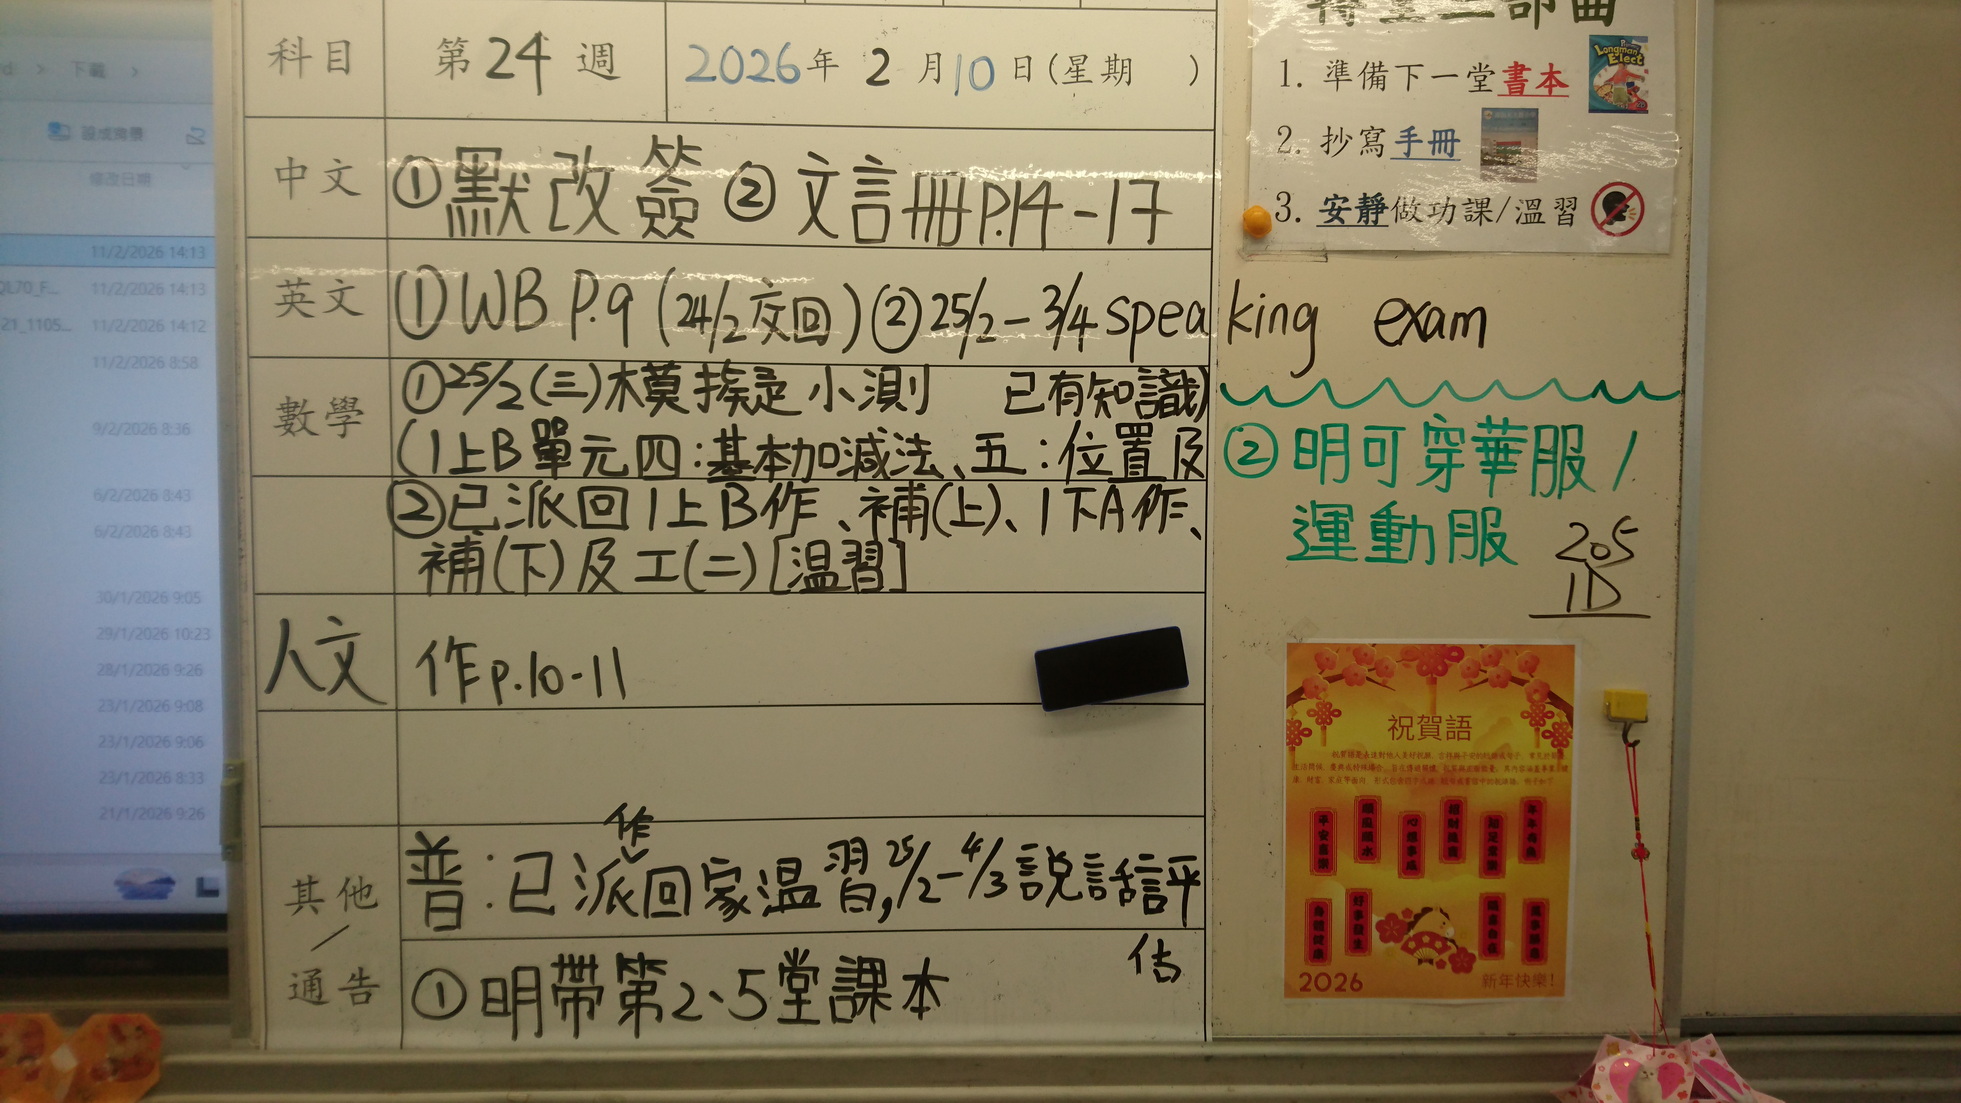 科目 第24週 2026年2月10日(星期 )
中文 ①默改簽 ②文言冊P.14-17
英文 ①WB P.9 (24/2交回) ②25/2-3/4 speaking exam
數學 ①25/2(三)模擬卷小測 已有知識)
(1上B單元四:基本加減法、五:位置及
②已派回1上B作、補(上)、1下A作、
補(下)及工(二)[温習]
人文 作p.10-11
其他/通告
作
普:已派回家温習,25/2-4/3說話評
估
①明帶第2、5堂課本
1. 準備下一堂書本
Longman
Elect
2. 抄寫手冊
3. 安靜做功課/溫習
②明可穿華服/
運動服
205
1D
祝賀語
2026
新年快樂!
下載
修改日期
11/2/2026 14:13
11/2/2026 14:13
11/2/2026 14:12
11/2/2026 8:58
9/2/2026 8:36
6/2/2026 8:43
6/2/2026 8:43
30/1/2026 9:05
29/1/2026 10:23
28/1/2026 9:26
23/1/2026 9:08
23/1/2026 9:06
23/1/2026 8:33
21/1/2026 9:26